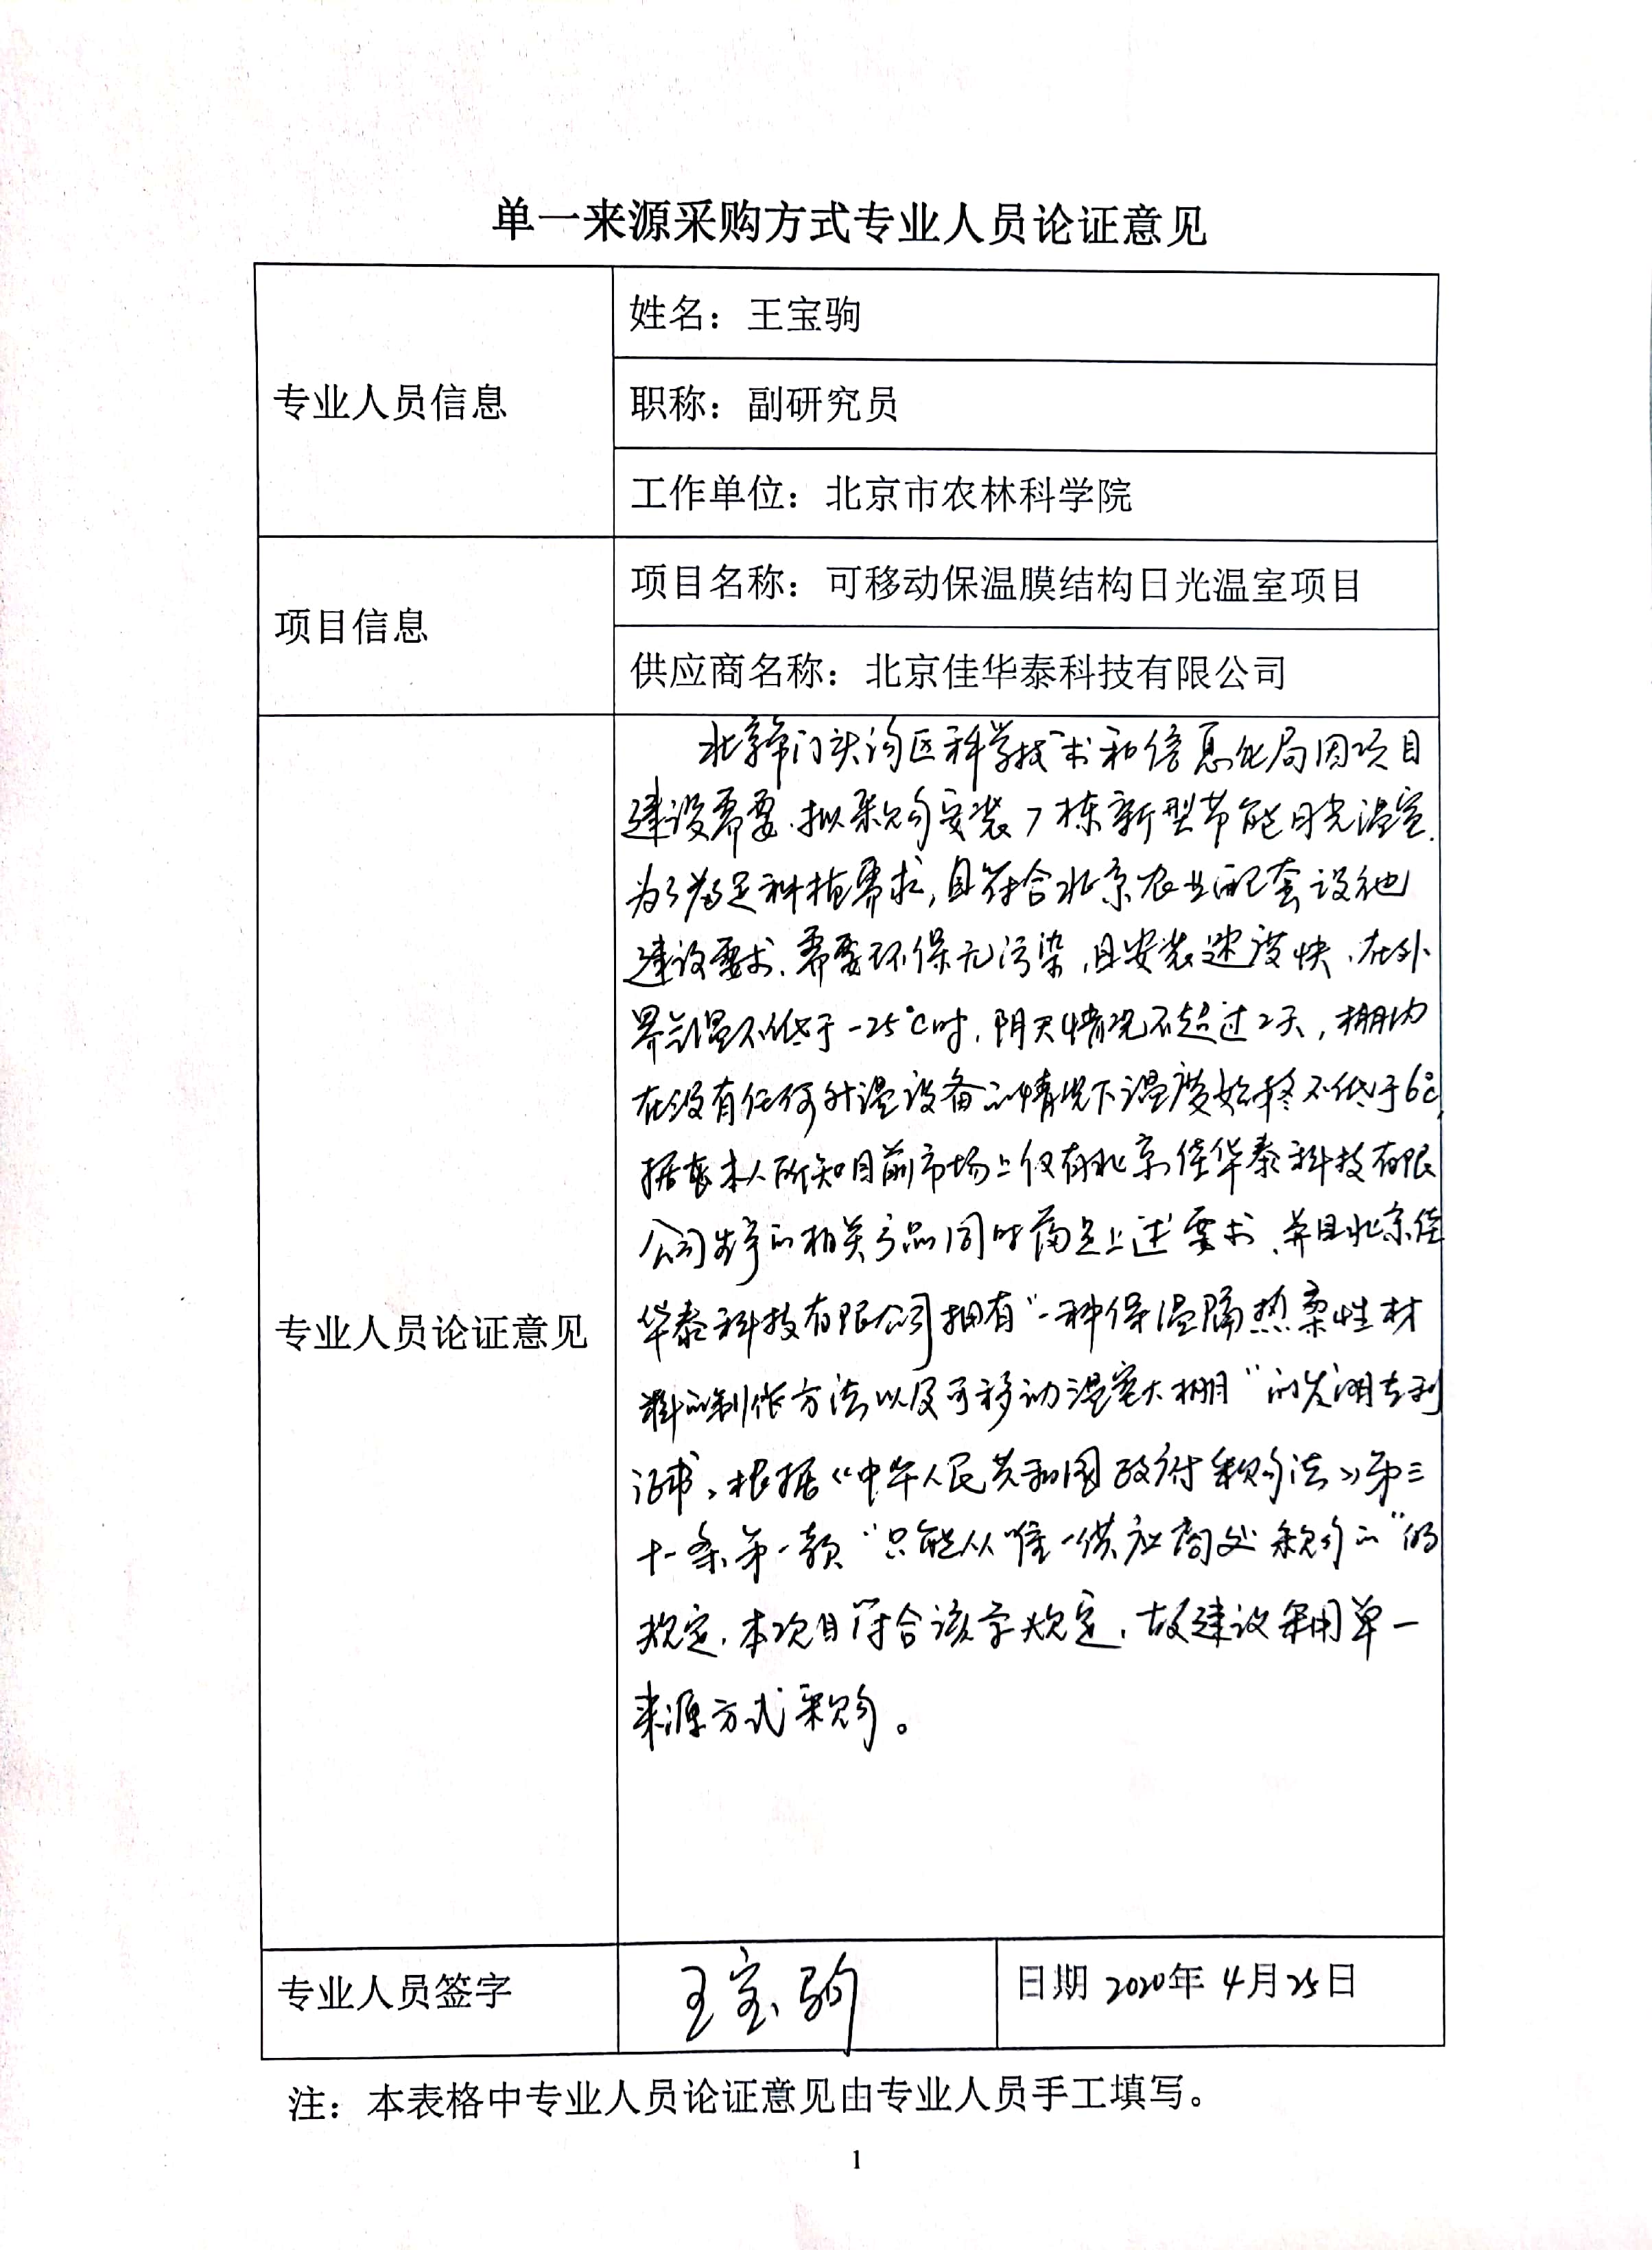 单一来源采购方式专业人员论证意见
专业人员信息
姓名：王宝驹
职称：副研究员
工作单位：北京市农林科学院
项目信息
项目名称：可移动保温膜结构日光温室项目
供应商名称：北京佳华泰科技有限公司
专业人员论证意见
北京市门头沟区科学技术和信息化局因项目
建设需要，拟采购安装7栋新型节能日光温室.
为了满足种植需求，且符合北京农业配套设施
建设要求，需要环保无污染，且安装速度快，在外
界气温不低于-25℃时，阴天情况不超过2天，棚内
在没有任何升温设备的情况下温度始终不低于6℃,
据我本人所知目前市场上仅有北京佳华泰科技有限
公司生产的相关产品同时满足上述要求，并且北京佳
华泰科技有限公司拥有“一种保温隔热柔性材
料的制作方法以及可移动温室大棚”的发明专利
证书。根据《中华人民共和国政府采购法》第三
十一条第一款“只能从唯一供应商处采购的”的
规定，本项目符合该条规定，故建议采用单一
来源方式采购。
专业人员签字
王宝驹
日期 2020年 4月25日
注：本表格中专业人员论证意见由专业人员手工填写。
1